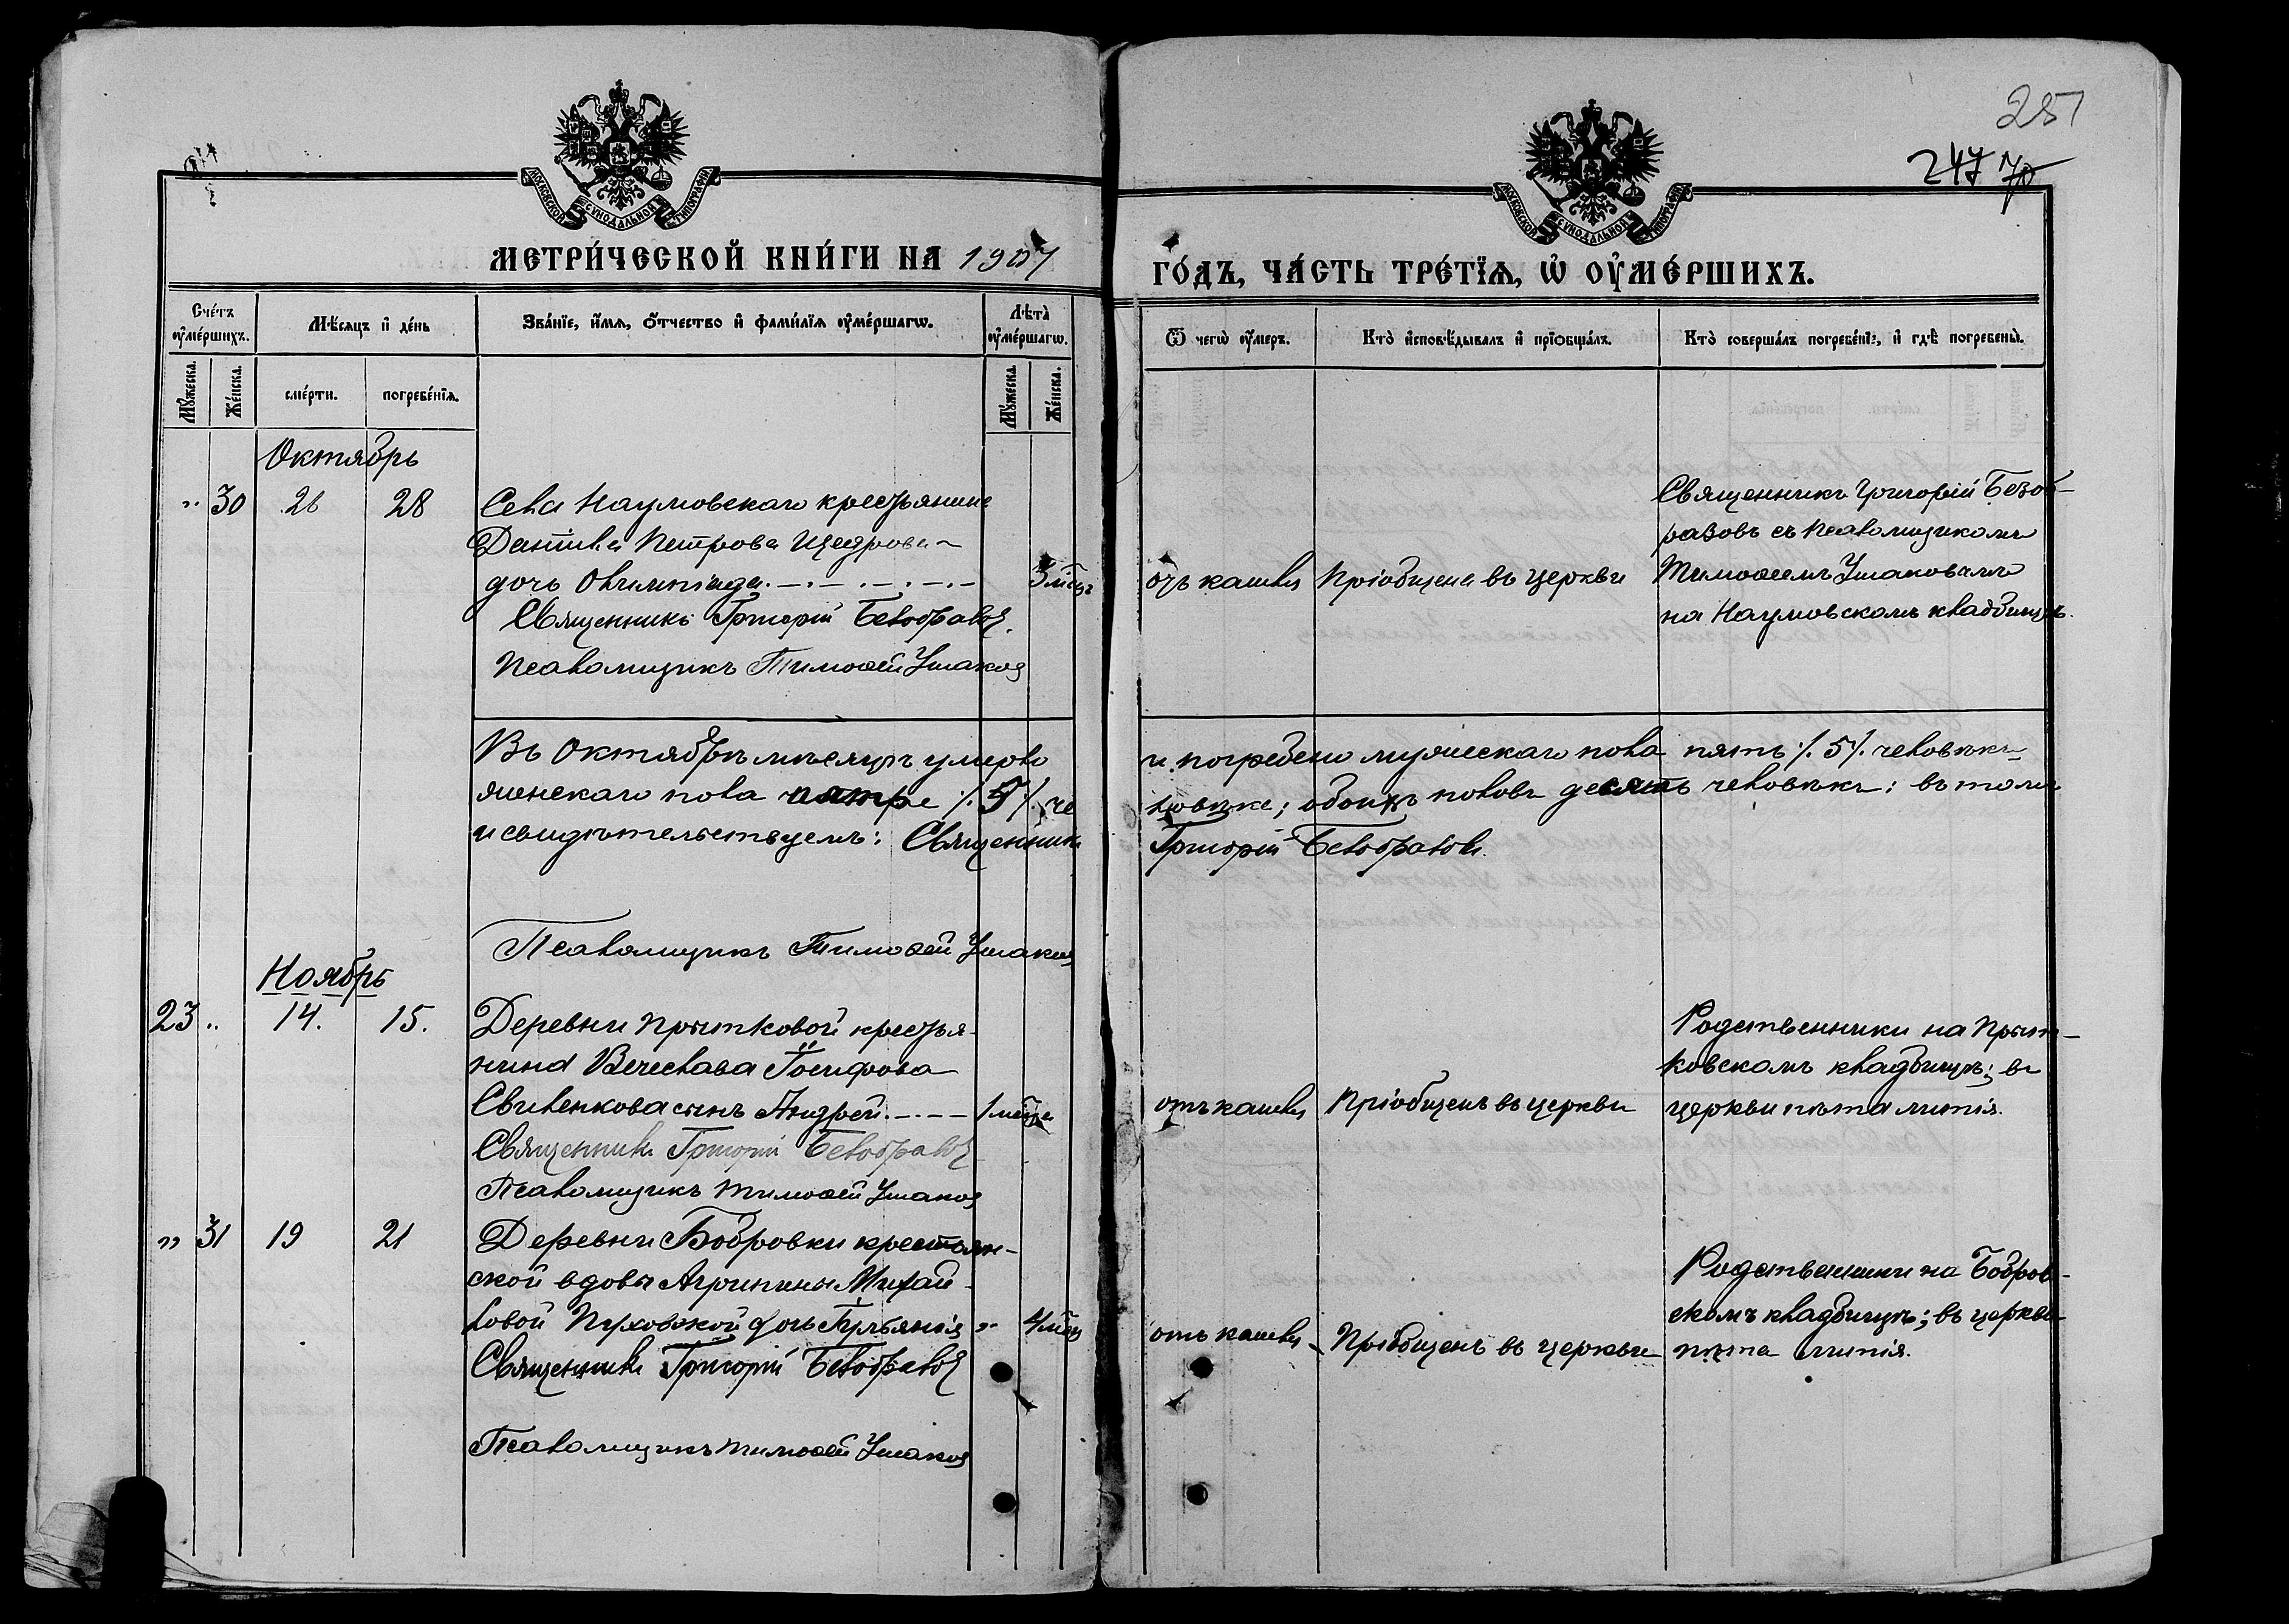 251
247 70
МОСКОВСКОЙ СѴНОДАЛЬНОЙ ТИПОГРАФІИ
МОСКОВСКОЙ СѴНОДАЛЬНОЙ ТИПОГРАФІИ
МЕТРИ́ЧЕСКОЙ КНИ́ГИ НА 1907
ГО́ДЪ, ЧА́СТЬ ТРЕ́ТЇѦ, Ѡ҆ ОУ҆МЕ́РШИХЪ.
Сче́тъ оу҆ме́ршихъ.
Мѣ́сѧцъ и҆ де́нь
Зва́нїе, и҆́мѧ, ѻ҆́тчество и҆ фами́лїѧ оу҆ме́ршагѡ.
Лѣта̀ оу҆ме́ршагѡ.
Ѿ чегѡ̀ оу҆́меръ.
Кто̀ и҆сповѣ́дывалъ и҆ прїѻбща́лъ.
Кто̀ соверша́лъ погребе́нїе, и҆ гдѣ̀ погребены̀.
Мꙋ́жеска. Же́нска.
сме́рти. погребе́нїѧ.
Мꙋ́жеска. Же́нска.
Октябрь
" 30 26 28 Села Наумовскаго крестьянина
Данiила Петрова Щедрова
дочь Олимпiада 3 мѣсц.
Священникъ Григорій Безобразовъ
Псаломщикъ Тимоѳей Ушаковъ
отъ кашля Пріобщена въ церкви
Священникъ Григорій Безоб-
разовъ съ псаломщикомъ
Тимоѳеемъ Ушаковымъ
на Наумовскомъ кладбищѣ.
Въ Октябрѣ мѣсяцѣ умерло и погребено мужескаго пола пять ⁒ 5 ⁒ человѣкъ
женскаго пола пять ⁒ 5 ⁒ че ловѣкъ; обоихъ половъ десять человѣкъ: въ томъ
и свидѣтельствуемъ: Священникъ Григорій Безобразовъ.
Псаломщикъ Тимоѳей Ушаковъ
Ноябрь
23 " 14. 15. Деревни Прытковой крестья-
нина Вячеслава Іосифова
Свиленкова сынъ Андрей 1 мѣсц
Священникъ Григорій Безобразовъ
Псаломщикъ Тимоѳей Ушаковъ
отъ кашля Пріобщенъ въ церкви
Родственники на Прыт-
ковскомъ кладбищѣ; въ
церкви пѣта литія.
" 31 19 21 Деревни Бобровки крестьян-
ской вдовы Агрипины Михай-
ловой Пуховской дочь Іульянія " 4 мѣсц
Священникъ Григорій Безобразовъ
Псаломщикъ Тимоѳей Ушаковъ
отъ кашля Пріобщенъ въ церкви
Родственники на Бобров-
скомъ кладбищѣ; въ церкви
пѣта литія.